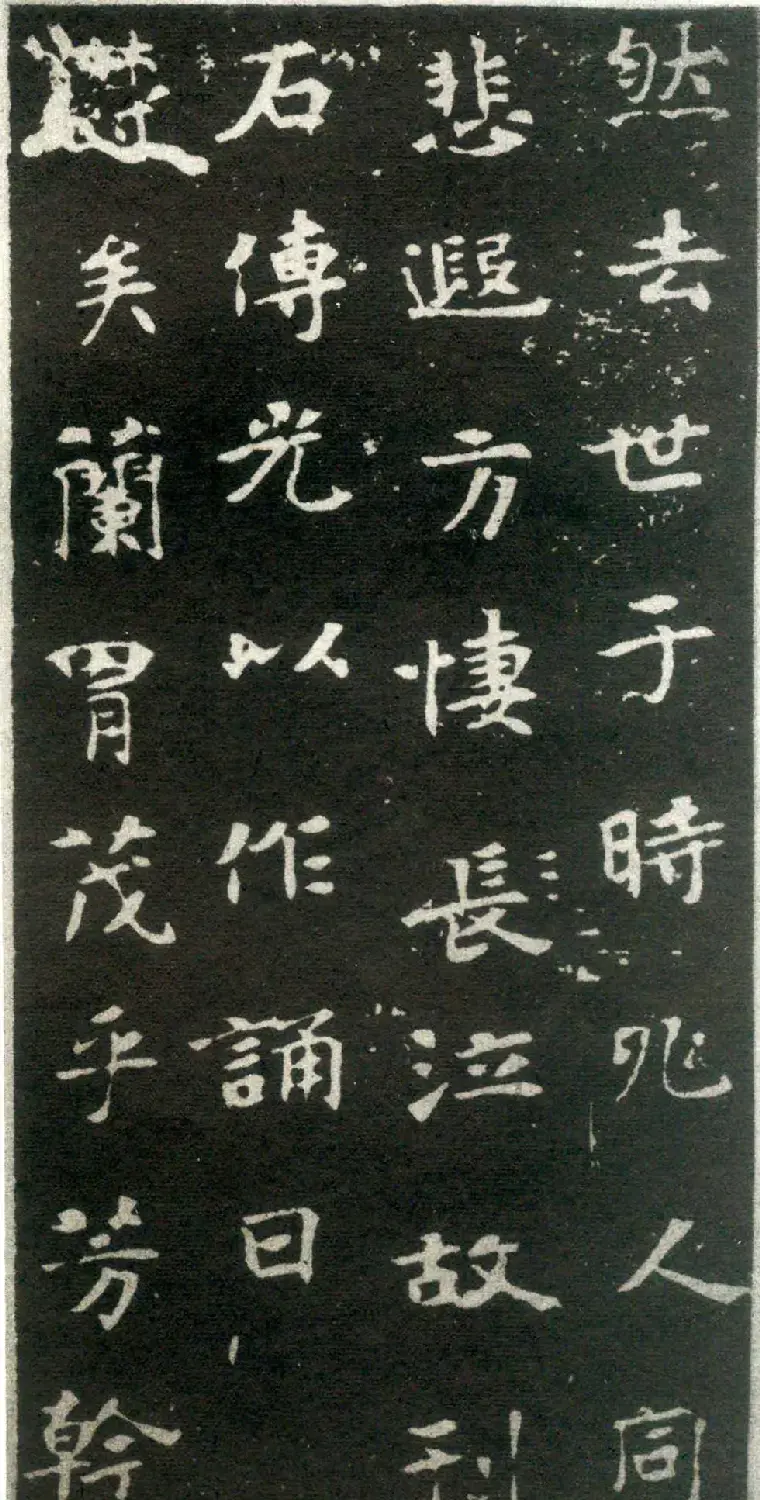 然去世于時兆人同
悲遐方悽長泣故刊
石傳光以作誦曰
矣蘭胄茂乎芳幹